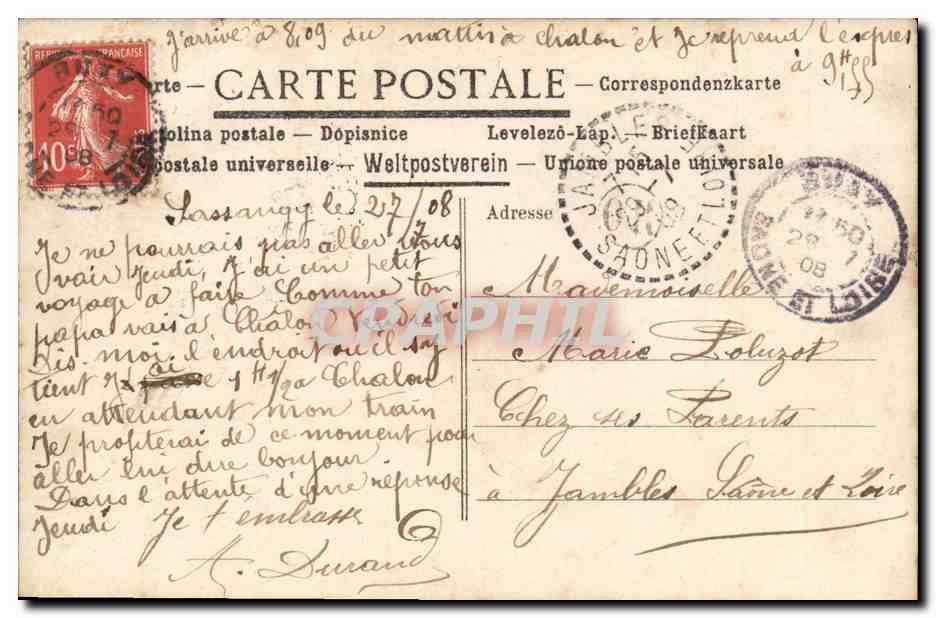 J'arrive à 8,09 du mattin à Chalon et je reprend l'expres
à 9H55
RÉPUBLIQUE FRANÇAISE
10
BUXY
SAONE ET LOIRE
CARTE POSTALE
Correspondenzkarte
tolina postale — Dopisnice
Levelezö-Lap. — Briefkaart
postale universelle — Weltpostverein — Unione postale universale
Adresse
JAMBLES
SAONE ET LOIRE
BUXY
11 50
29 7
08
SAONE ET LOIRE
Sassangy le 27/7/08
Je ne pourrais pas aller vous
voir Jeudi, J'ai un petit
voyage à faire Comme ton
papa vais à Châlon Vendredi
Dis-moi l'endroit ou il s'y
tient J 1H1/2 a Chalon
en attendant mon train
Je profiterai de ce moment pour
aller lui dire bonjour
Dans l'attente d'une réponse
Jeudi Je t'embrasse
A. Durand
Mademoiselle
Marie Poluzot
Chez ses Parents
à Jambles Saône et Loire
CPAPHIL